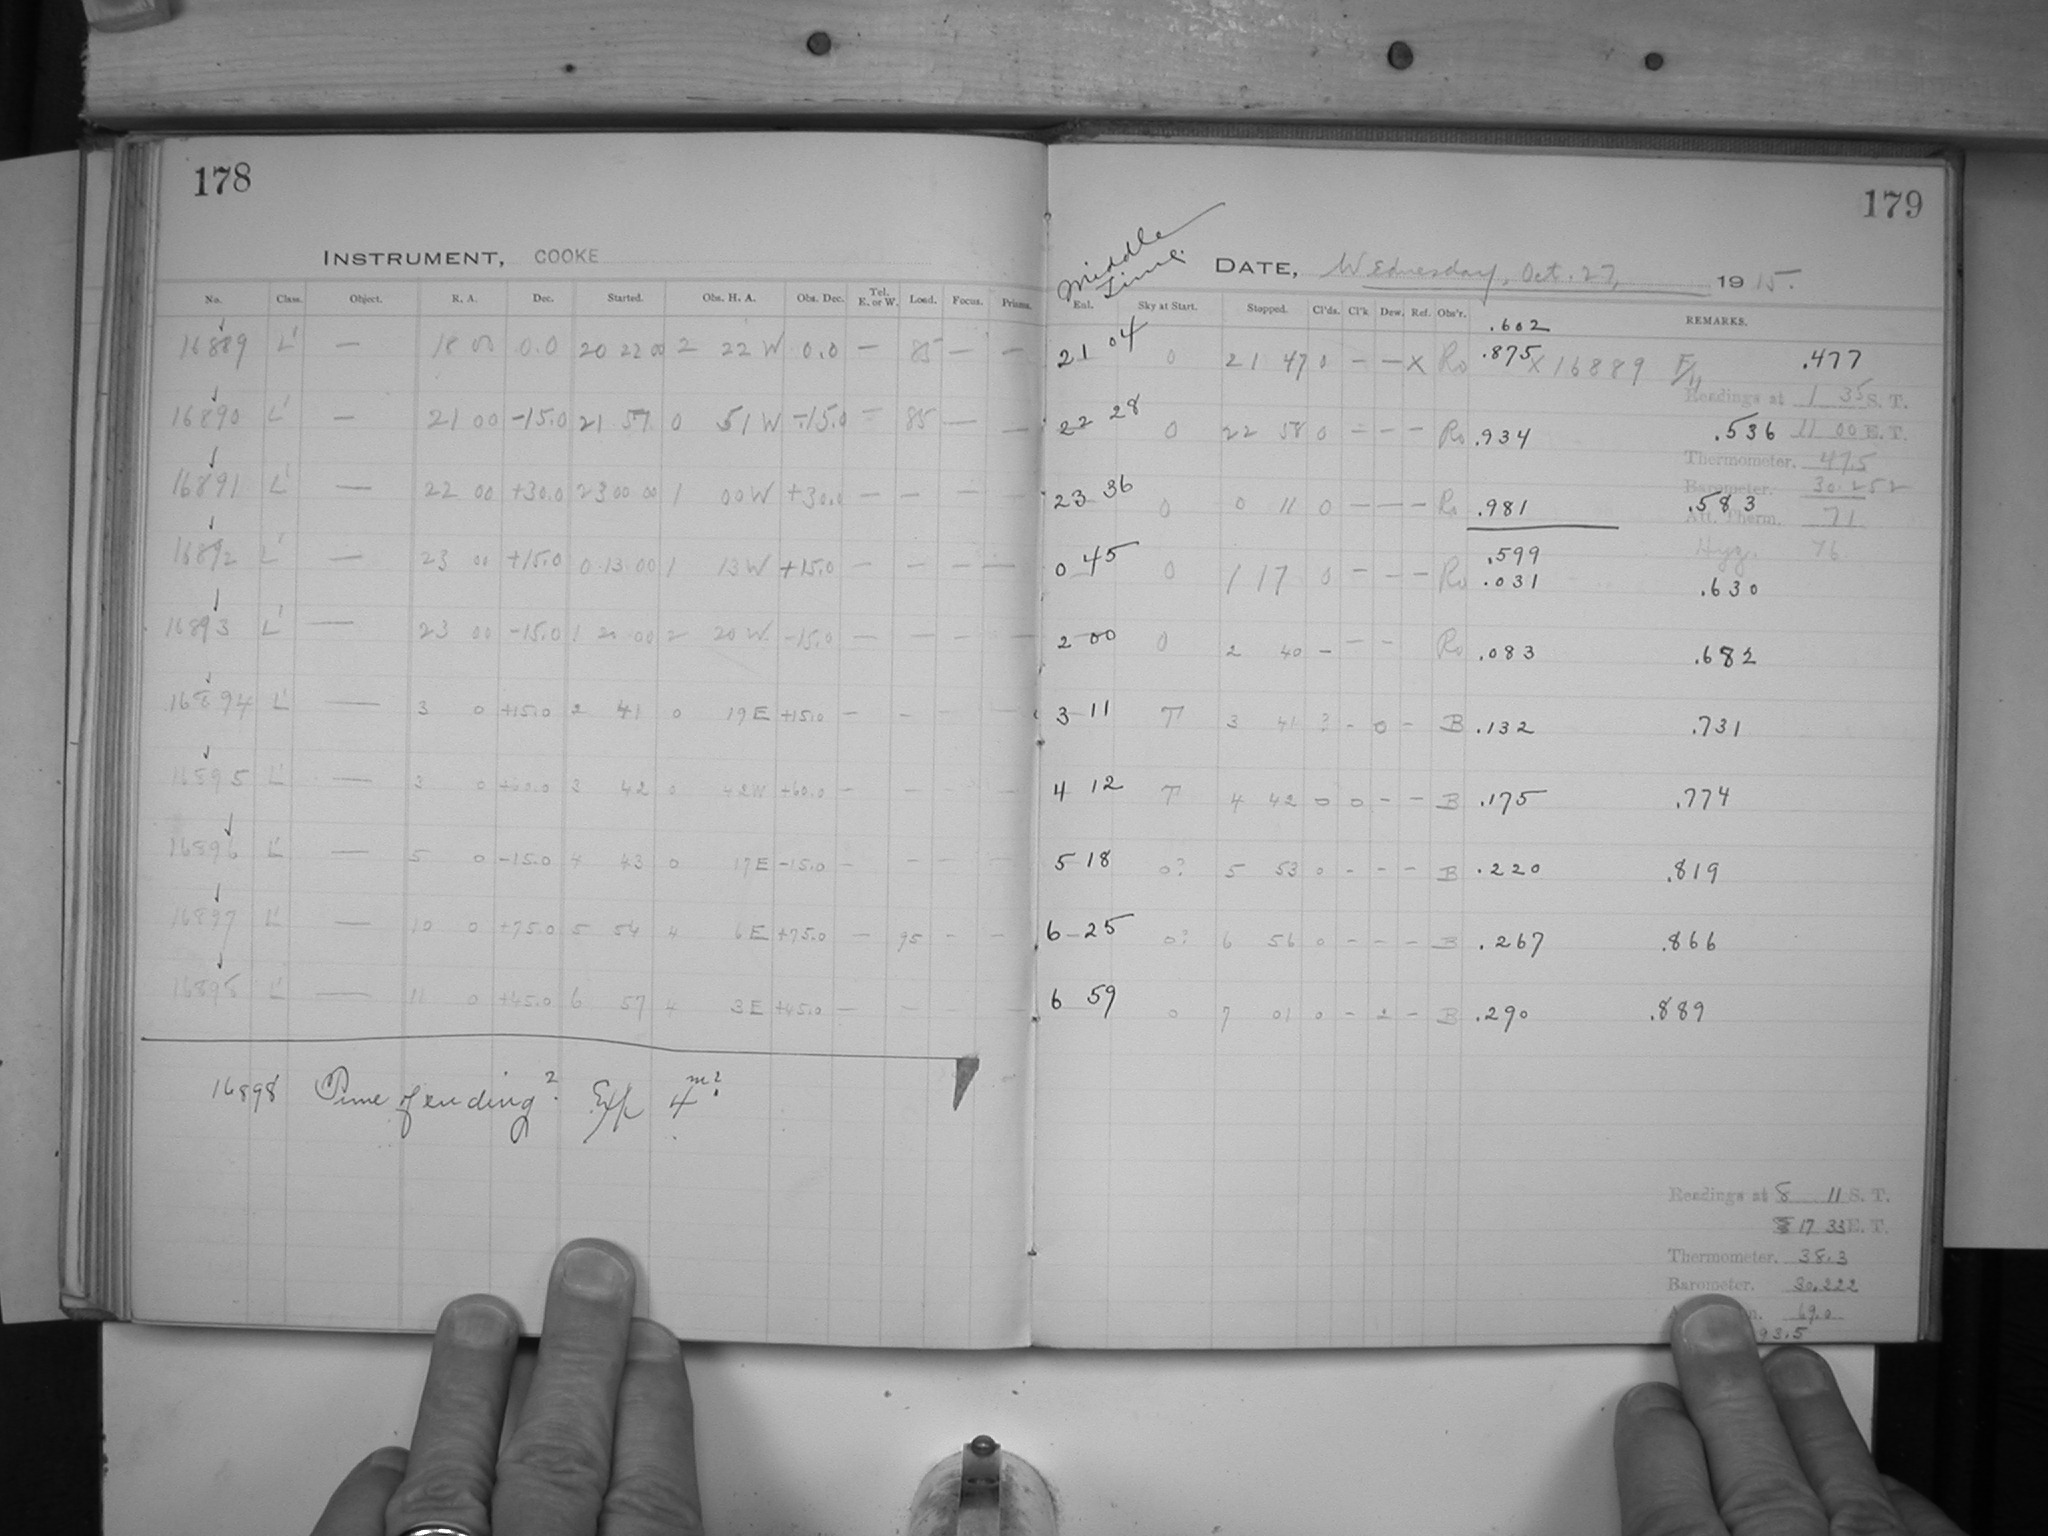 178
INSTRUMENT, COOKE
No. Class. Object. R. A. Dec. Started. Obs. H. A. Obs. Dec. Tel. E. or W. Load. Focus. Prisms.
16889 L' — 18 00 0.0 20 22 00 2 22 W 0.0 — 85 — —
16890 L' — 21 00 -15.0 21 57 0 51 W -15.0 = 85 — —
16891 L' — 22 00 +30.0 23 00 00 1 00 W +30.0 — — — —
16892 L' — 23 00 +15.0 0 13 00 1 13 W +15.0 — — — —
16893 L' — 23 00 -15.0 1 20 00 2 20 W -15.0 — — — —
16894 L' — 3 0 +15.0 2 41 0 19 E +15.0 — - - —
16895 L' — 3 0 +60.0 3 42 0 42 W +60.0 - - - —
16896 L' — 5 0 -15.0 4 43 0 17 E -15.0 — - - —
16897 L' — 10 0 +75.0 5 54 4 6 E +75.0 — 95 - —
16898 L' — 11 0 +45.0 6 57 4 3 E +45.0 — - - —
16898 Time of ending? Exp 4m?
179
Middle Time.
DATE, Wednesday, Oct. 27, 1915.
Enl. Sky at Start. Stopped. Cl'ds. Cl'k Dew. Ref. Obs'r. REMARKS.
.602
21 04 0 21 47 0 — — X Ro .875 X 16889 .477
Readings at 1 35 S. T.
22 28 0 22 58 0 - - - Ro .934 .536 11 00 E. T.
Thermometer. 47.5
Barometer. 30.252
23 36 0 0 11 0 — — - Ro .981 .583
Att. Therm. 71
.599 Hyg. 76
0 45 0 1 17 0 - - - Ro .031 .630
2 00 0 2 40 - - - Ro .083 .682
3 11 T 3 41 ? - 0 - B .132 .731
4 12 T 4 42 0 0 - - B .175 .774
5 18 0? 5 53 0 - - - B .220 .819
6 25 0? 6 56 0 - - - B .267 .866
6 59 0 7 01 0 - 2 - B .290 .889
Readings at 8 11 S. T.
17 33 E. T.
Thermometer. 38.3
Barometer. 30.222
69.0
93.5